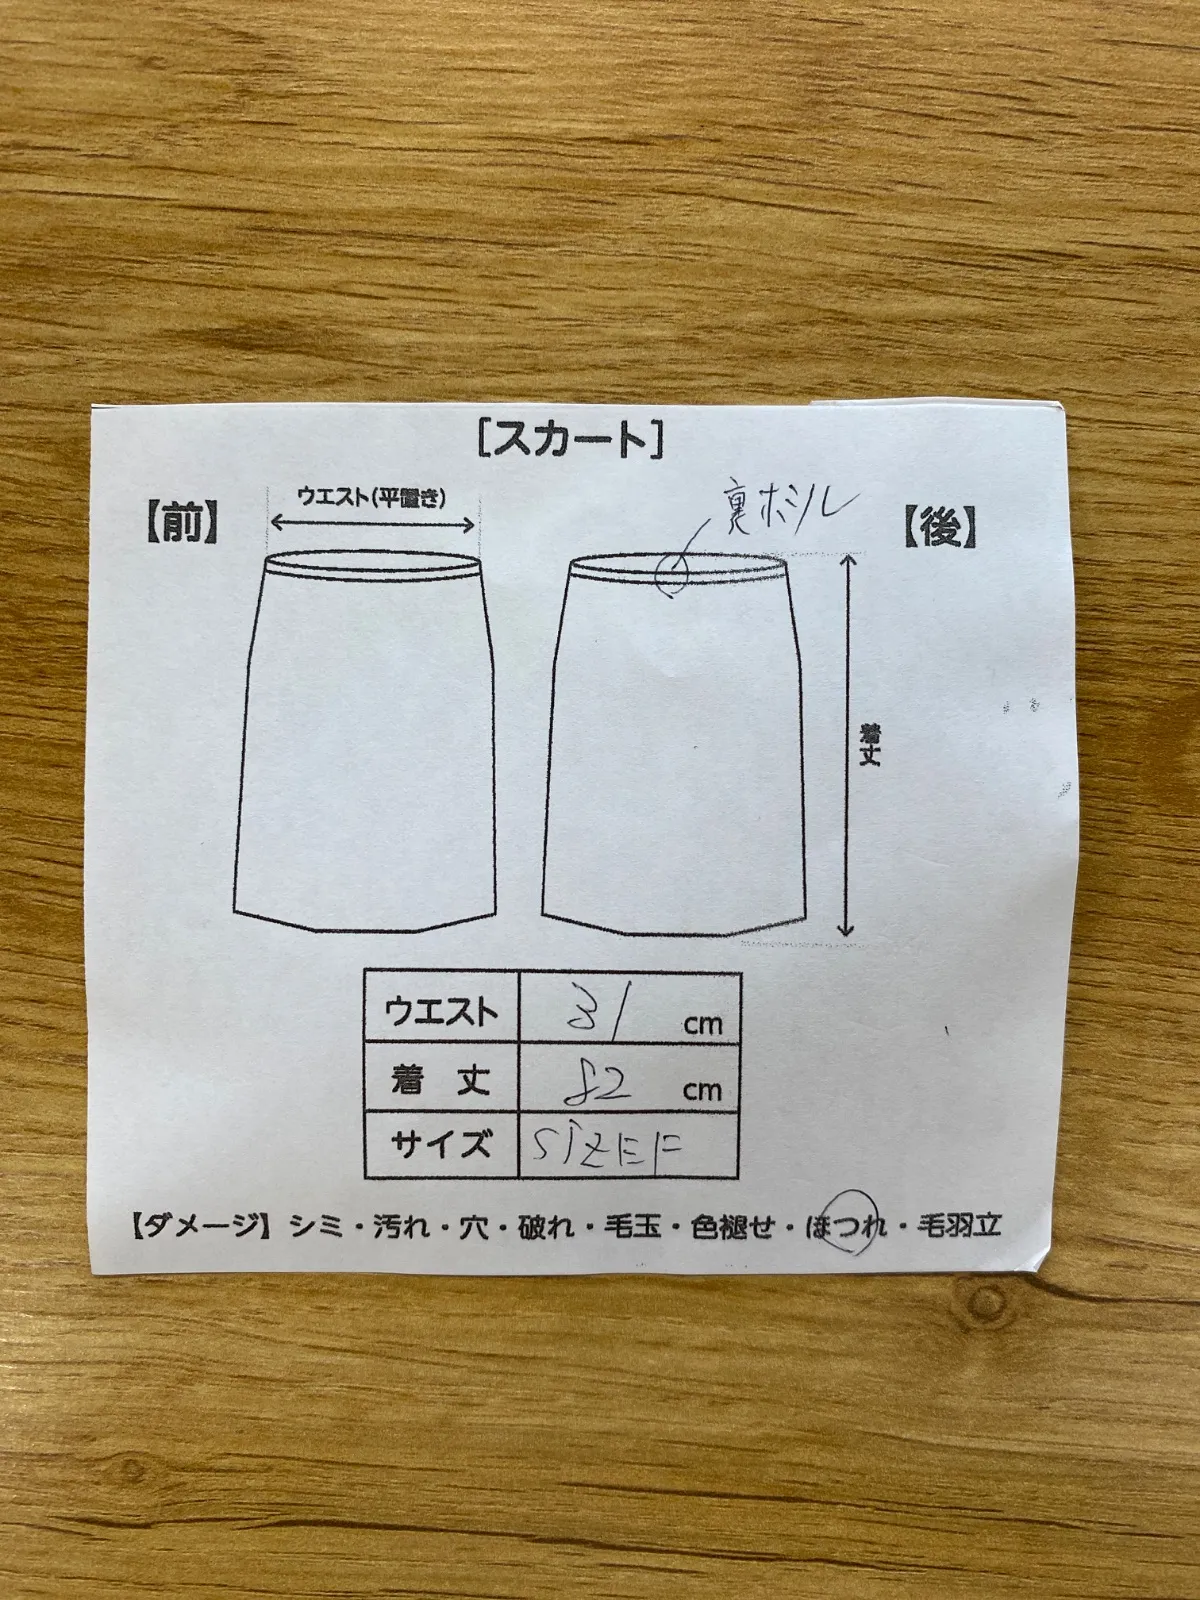 [スカート]
【前】
ウエスト(平置き)
裏ホツレ
【後】
着丈
ウエスト 31 cm
着 丈 82 cm
サイズ SIZE F
【ダメージ】シミ・汚れ・穴・破れ・毛玉・色褪せ・ほつれ・毛羽立